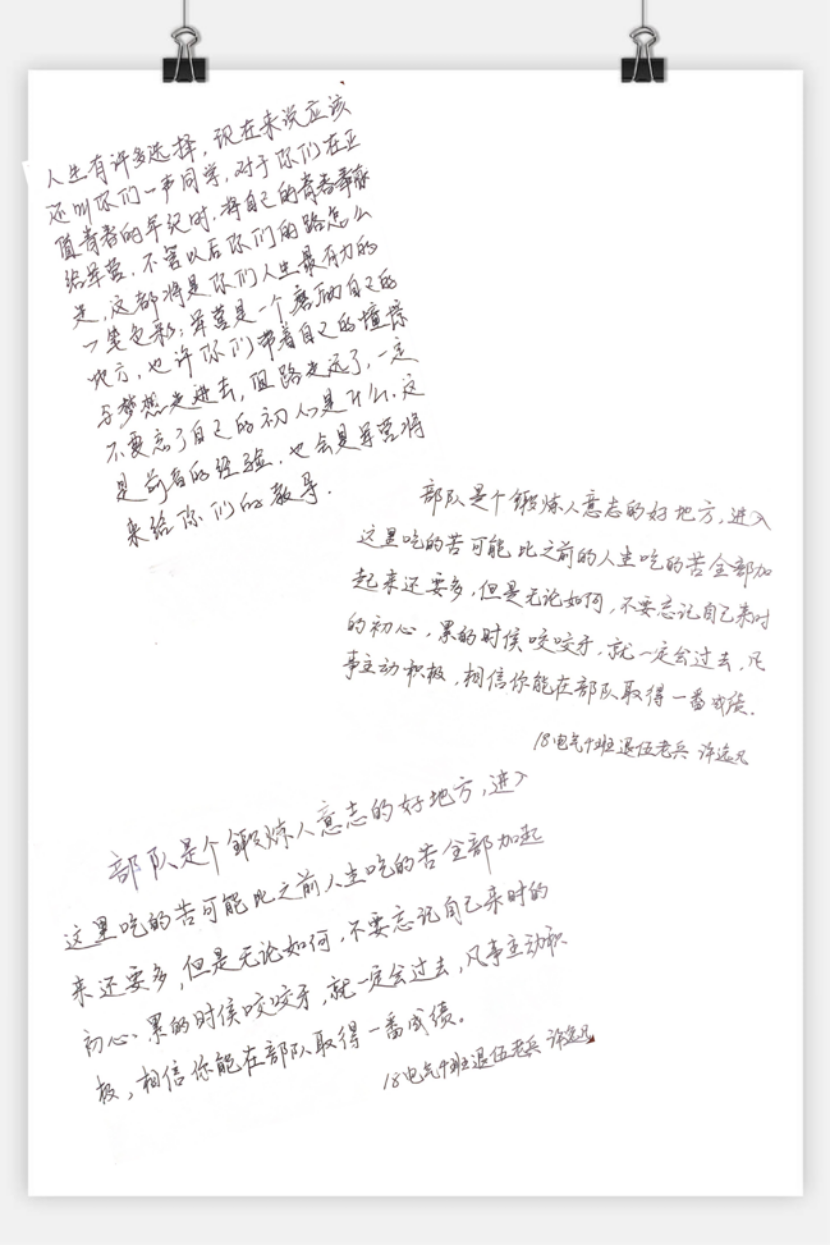 人生有许多选择，现在来说应该
还叫你们一声同学，对于你们在正
值青春的年纪时，将自己的青春奉献
给军营，不管以后你们的路怎么
走，这都将是你们人生最有力的
一笔色彩；军营是一个磨砺自己的
地方，也许你们带着自己的憧憬
与梦想走进去，但路走远了，一定
不要忘了自己的初心是什么，这
是前者的经验，也会是军营将
来给你们的教导.
部队是个锻炼人意志的好地方，进入
这里吃的苦可能比之前的人生吃的苦全部加
起来还要多，但是无论如何，不要忘记自己来时
的初心，累的时候咬咬牙，就一定会过去，凡
事主动积极，相信你能在部队取得一番成绩.
18电气4班退伍老兵 许远兄
部队是个锻炼人意志的好地方，进入
这里吃的苦可能比之前人生吃的苦全部加起
来还要多，但是无论如何，不要忘记自己来时的
初心、累的时候咬咬牙，就一定会过去，凡事主动积
极，相信你能在部队取得一番成绩。
18电气4班退伍老兵 许远兄